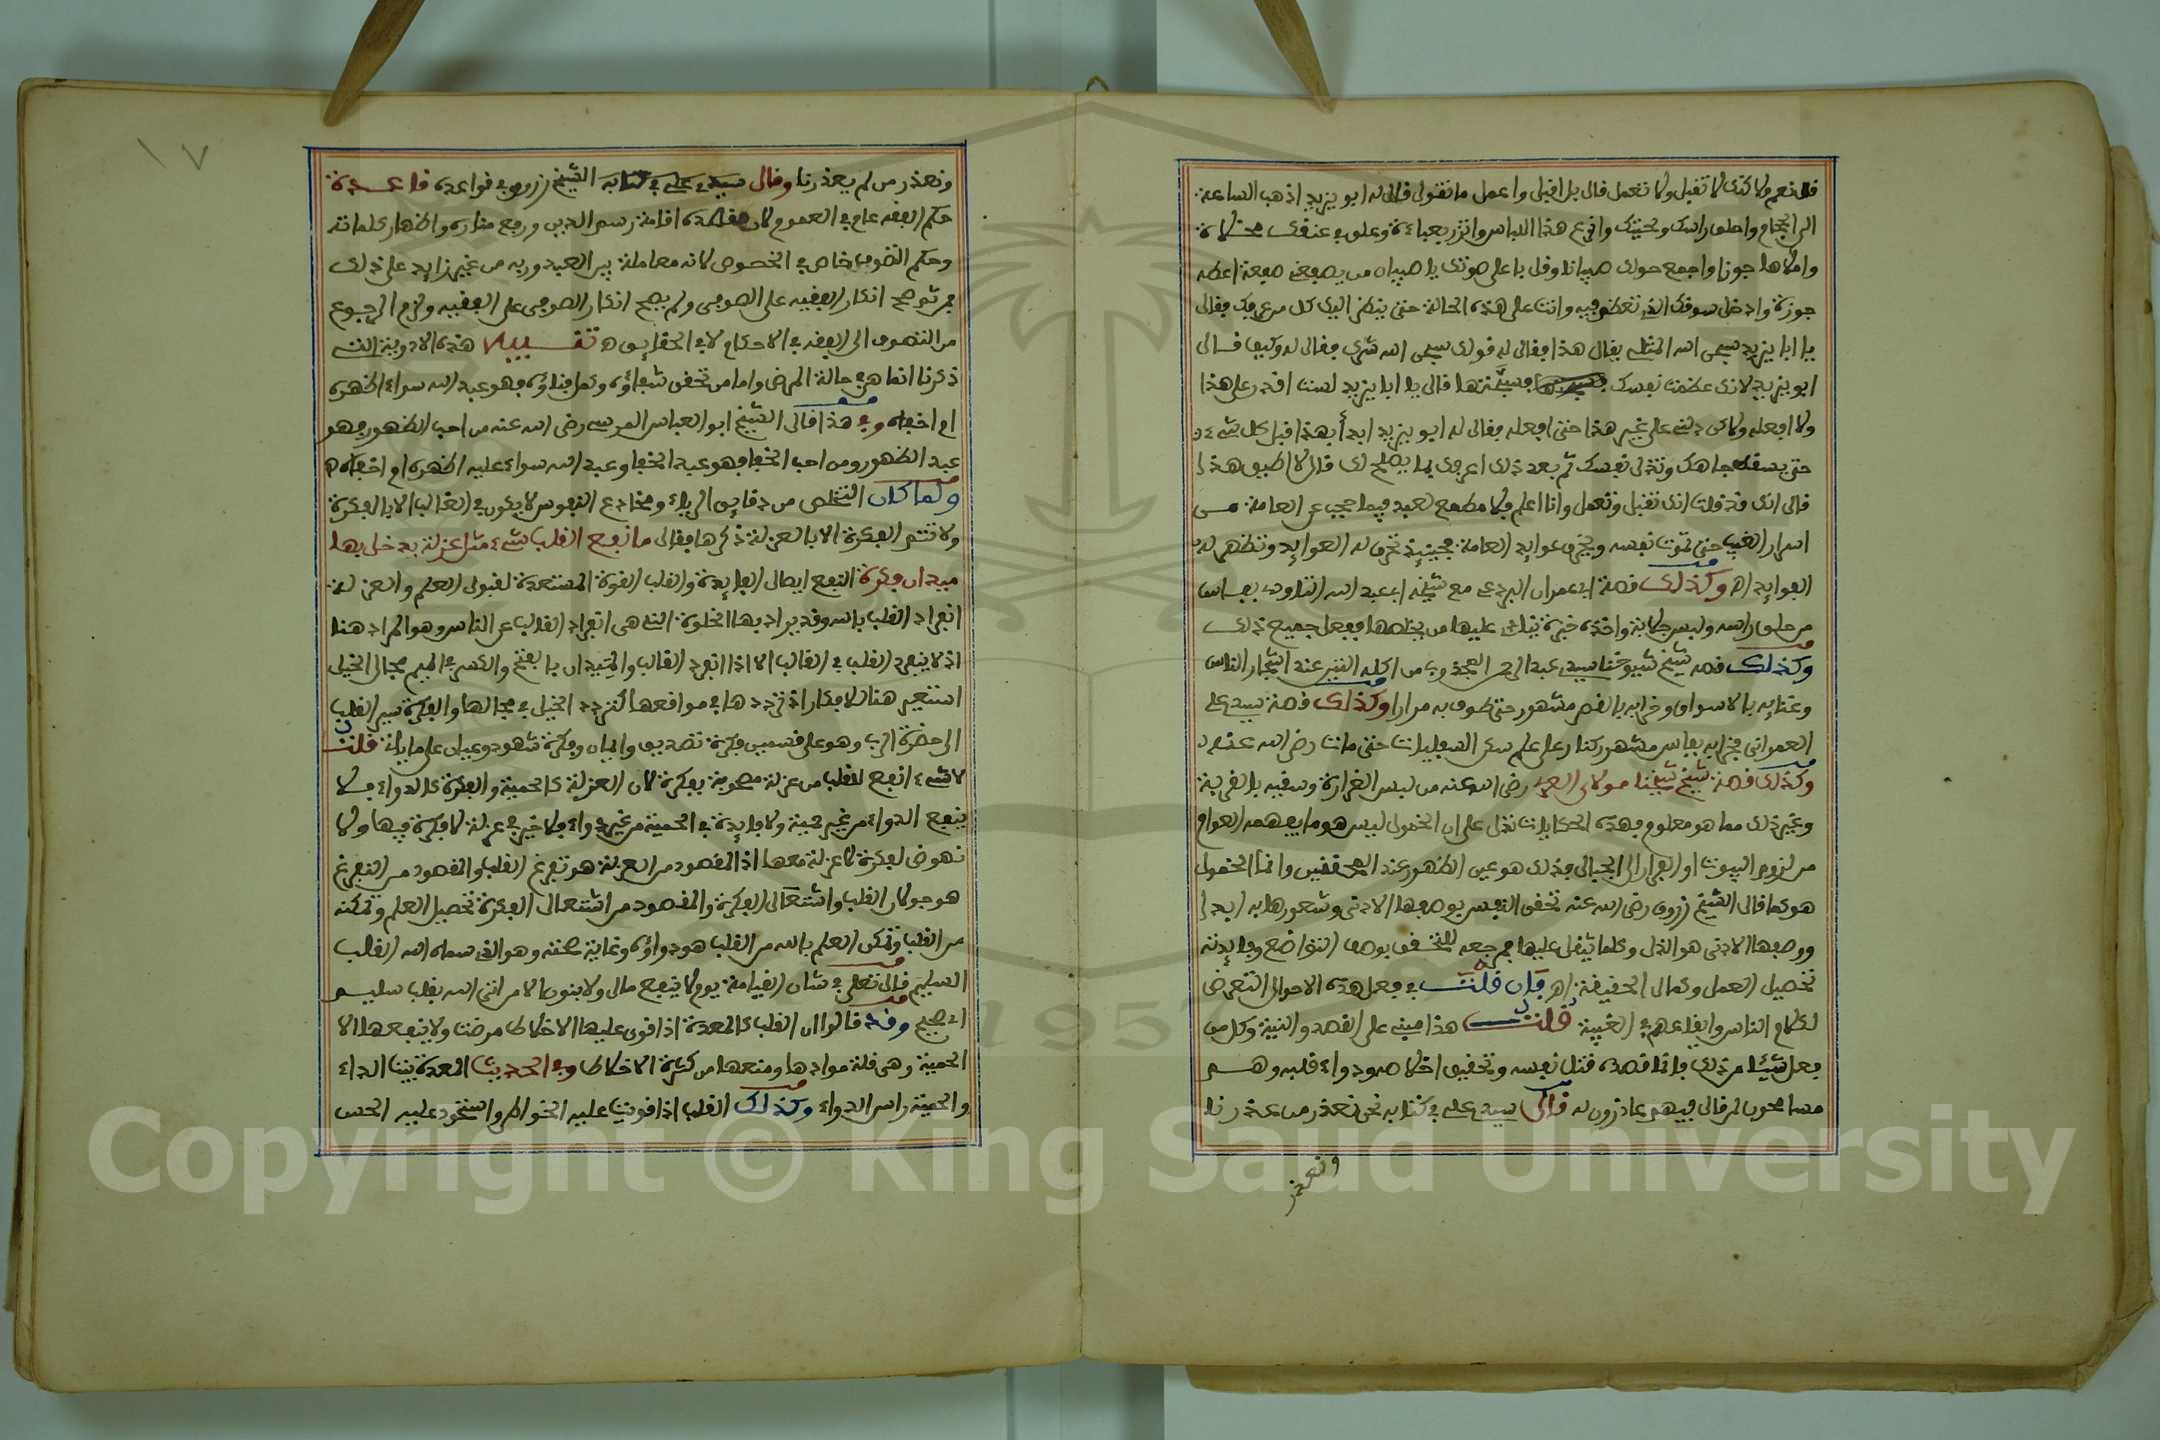 قال نعم ولاكنك لا تقبل ولا تعمل قال بل اقبل واعمل ما تقول قال له ابو يزيد اذهب الساعة
الى الحجام واحلق راسك ولحيتك وانزع هذا اللباس واتزر بعباءة وعلق في عنقك مخلاة
واملاها جوزا واجمع حولك صبيانا وقل باعلى صوتك يا صبيان من يصفعني صفعة اعطه
جوزة وادخل سوقك الذي تعظم فيه وانت على هذه الحالة حتى ينظر اليك كل من عرفك فقال
يا ابا يزيد سبحن الله المثلي يقال هذا فقال له قولك سبحن الله شرك فقال له وكيف قال
ابو يزيد لانك عظمت نفسك فسبحتها قال يا ابا يزيد لست اقدر على هذا
ولا افعله ولاكن دلني على غير هذا حتى افعله فقال له ابو يزيد ابدأ بهذا قبل كل شيء
حتى يسقط جاهك وتذل نفسك ثم بعد ذلك اعرفك بما يصلح لك قال لا اطيق هذا
قال انك قد قلت انك تقبل وتعمل وانا اعلم فلا مطمع لعبد فيما حجب عن العامة من
اسرار الغيب حتى تموت نفسه ويخرق عوايد العامة فحينيذ تخرق له العوايد وتظهر له
الفوايد اه وكذلك قصة ابي عمران البردعي مع شيخه ابي عبد الله التاودي بفاس
من حلق راسه ولبس جلابة واخذه خبزة ينادي عليها من يخلصها ففعل جميع ذلك
وكذلك قصة شيخ شيوخنا سيدي عبد الرحمن المجذوب من اكله التين عند اشجار الناس
وغنايه بالاسواق وخرابه بالقصر مشهور حتى طوف به مرارا وكذلك قصة سيدي علي
العمراني فخرابه بفاس مشهور كنار على علم سكن السفليات حتى مات رضي الله عنه
وكذلك قصة شيخ شيخنا مولاي العربي رضي الله عنه من لبس الغرارة وسقيه بالقربة
وغير ذلك مما هو معلوم فهذه الحكايات تدل على ان الخمول ليس هو ما يفهمه العوام
من لزوم البيوت او الفرار الى الجبال فذلك هو عين الظهور عند المحققين وانما الخمول
هو كما قال الشيخ زروق رضي الله عنه تحقق النفس بوصفها الادنى وشعورها به ابدا
ووصفها الادنى هو الذل وكلما يثقل عليها فمرجعه للتحقق بوصف التواضع وفايدته
تحصيل العمل وكمال الحقيقة اه فان قلت في فعل هذه الاحوال التعرض
لكلام الناس وايقاعهم في الغيبة قلت هذا مبني على القصد والنية وكل من
فعل شيئا من ذلك فانما قصده قتل نفسه وتحقيق اخلاصه ودواء قلبه وهم
مسامحون لمن قال فيهم عاذرون له قال سيدي علي في كتابه نحن نعذر من عذرنا
ونعذر
١٧
ونعذر من لم يعذرنا وقال الشيخ زروق في قواعده قاعدة
حكم الفقه عام في العموم لان مقصده اقامة رسم الدين ورفع مناره واظهار كلماته
وحكم التصوف خاص في الخصوص لانه معاملة بين العبد وربه من غير زايد على ذلك
فمن ثم صح انكار الفقيه على الصوفي ولم يصح انكار الصوفي على الفقيه ولزم الرجوع
من التصوف الى الفقه في الاحكام لا في الحقايق ه تنبيه هذه الادوية التي
ذكرنا انما هي حالة المرض واما من تحقق شفاؤه وكمل فناؤه فهو عبد الله سواء اظهره
او اخفاه وفي هذا قال الشيخ ابو العباس المرسي رضي الله عنه من احب الظهور فهو
عبد الظهور ومن احب الخفا فهو عبد الخفا وعبد الله سواء عليه اظهره او اخفاه ه
ولما كان التخلص من دقايق الرياء ومخادع النفوس لا يكون في الغالب الا بالفكرة
ولا تتم الفكرة الا بالعزلة ذكرها فقال ما نفع القلب شيء مثل عزلة يدخل بها
ميدان فكرة النفع ايصال الفايدة والقلب القوة المستعدة لقبول العلم والعزلة
انفراد القلب بالله وقد يراد بها الخلوة التي هي انفراد القالب عن الناس وهو المراد هنا
اذ لا ينفرد القلب في الغالب الا اذا انفرد القالب والميدان بالفتح والكسر في الميم مجال الخيل
استعير هنا للافكار اذ ترددها في مواقعها كتردد الخيل في مجالها والفكرة سير القلب
الى حضرة الرب وهو على قسمين فكرة تصديق وايمان وفكرة شهود وعيان على ما ياتي قلت
لا شيء انفع للقلب من عزلة مصحوبة بفكرة لان العزلة كالحمية والفكرة كالدواء فلا
ينفع الدواء من غير حمية ولا فايدة في الحمية من غير دواء فلا خير في عزلة لا فكرة فيها ولا
نهوض لفكرة لا عزلة معها اذ المقصود من العزلة هو تفرغ القلب والمقصود من التفرغ
هو جولان القلب واشتغال الفكرة والمقصود من اشتغال الفكرة تحصيل العلم وتمكنه
من القلب وتمكن العلم بالله من القلب هو دواؤه وغاية صحته وهو الذي سماه الله القلب
السليم قال تعلى في شان القيامة يوم لا ينفع مال ولا بنون الا من اتى الله بقلب سليم
اي صحيح وقد قالوا ان القلب كالمعدة اذا قوى عليها الاخلاط مرضت ولا ينفعها الا
الحمية وهي قلة موادها ومنعها من كثرة الاخلاط وفي الحديث المعدة بيت الداء
والحمية راس الدواء وكذلك القلب اذا قويت عليه الخواطر واستحوذ عليه الحس
Copyright © King Saud University
1957